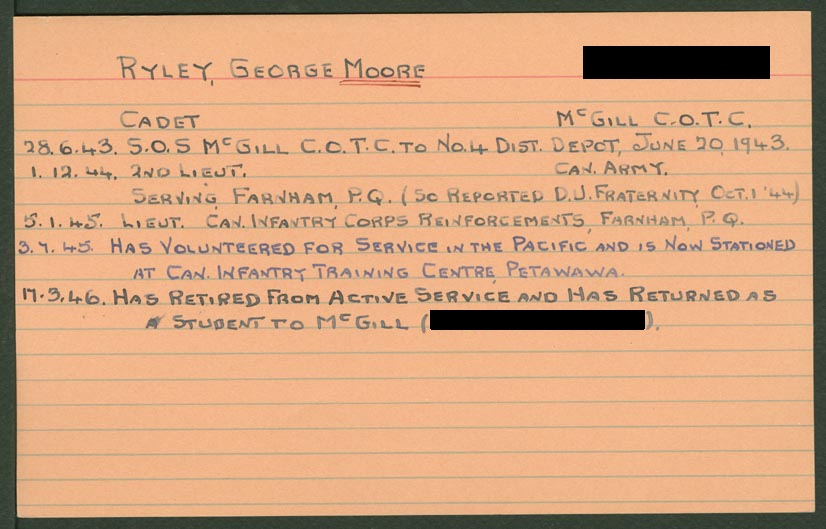 RYLEY, GEORGE MOORE
CADET McGILL C.O.T.C.
28.6.43. S.O.S McGILL C.O.T.C. TO No.4 DIST. DEPOT, JUNE 20, 1943.
1.12.44. 2ND LIEUT. CAN. ARMY.
SERVING, FARNHAM, P.Q. (SO REPORTED D.U. FRATERNITY, OCT. 1 '44)
5.1.45. LIEUT. CAN. INFANTRY CORPS REINFORCEMENTS, FARNHAM, P.Q.
3.7.45. HAS VOLUNTEERED FOR SERVICE IN THE PACIFIC AND IS NOW STATIONED
AT CAN. INFANTRY TRAINING CENTRE, PETAWAWA.
17.3.46. HAS RETIRED FROM ACTIVE SERVICE AND HAS RETURNED AS
A STUDENT TO McGILL ( ).